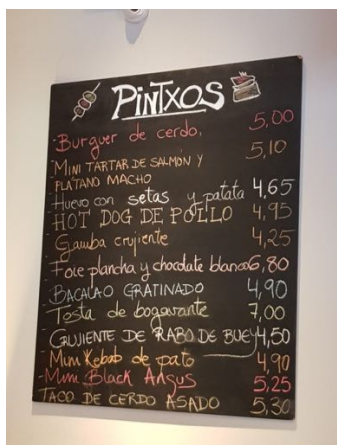 PINTXOS
- Burguer de cerdo. 5,00
- MINI TARTAR DE SALMÓN Y 5,10
PLÁTANO MACHO
- Huevo con setas y patata 4,65
- HOT DOG DE POLLO 4,95
- Gamba crujiente 4,25
- Foie plancha y chocolate blanco 6,80
- BACALAO GRATINADO 4,90
- Tosta de bogavante 7,00
- CRUJIENTE DE RABO DE BUEY 4,50
- Mini Kebab de pato 4,90
- Mini Black Angus 5,25
- TACO DE CERDO ASADO 5,30